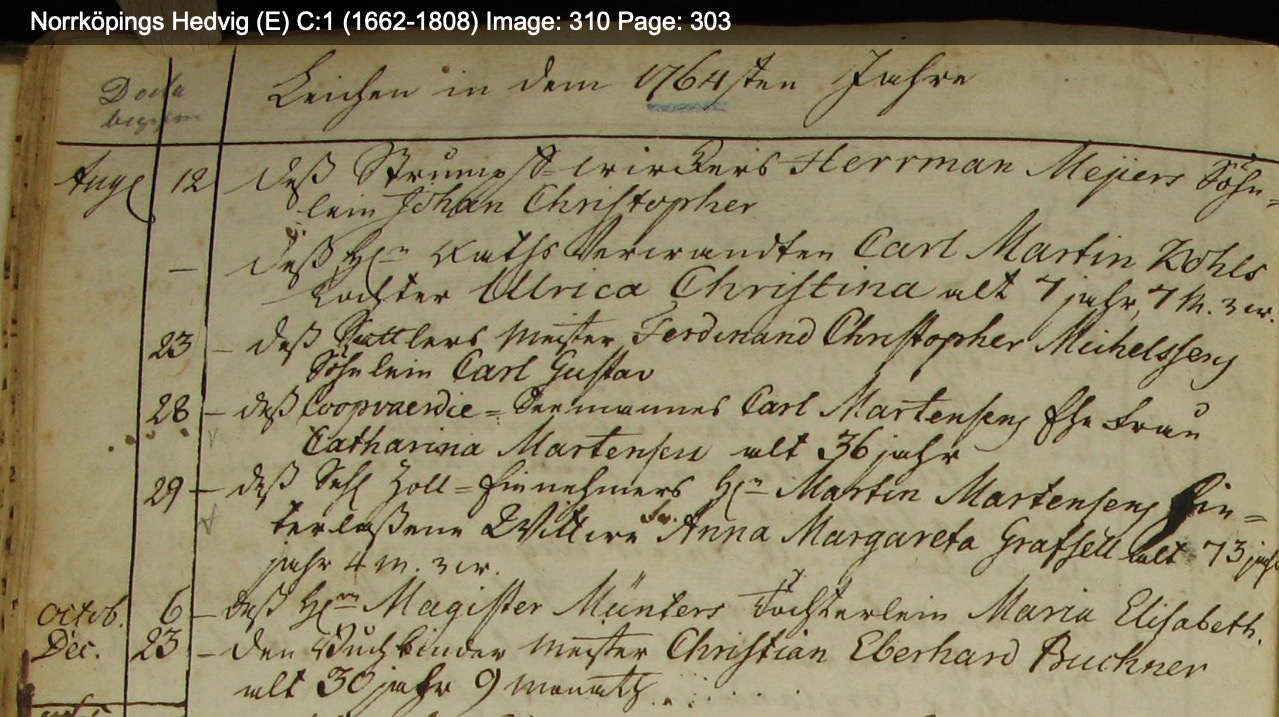 Norrköpings Hedvig (E) C:1 (1662-1808) Image: 310 Page: 303
Leichen in dem 1764sten Jahre
Aug 12 deß Strumpff-wirckers Herrman Meyers Söhn=
lein Johan Christopher
— deß Hrn Raths Verwandten Carl Martin Kohls
Tochter Ulrica Christina alt 7 jahr, 7 M. 3 W.
23 — deß Sattlers Meister Ferdinand Christopher Michelssens
Söhnlein Carl Gustav
28 — deß Coopvaerdie=Seemannes Carl Martensens Ehe Frau
Catharina Martensen alt 36 jahr
29 — deß Sehl Zoll=Einnehmers Hrn Martin Martensens Hin=
terlaßene Wittwe Fr. Anna Margareta Grafsell alt 73
jahr 4 M. 3 W.
Octob. 6 — deß Hrn Magister Münters Töchterlein Maria Elisabeth.
Dec. 23 — der Buchbinder Meister Christian Eberhard Buchner
alt 30 jahr 9 Monath